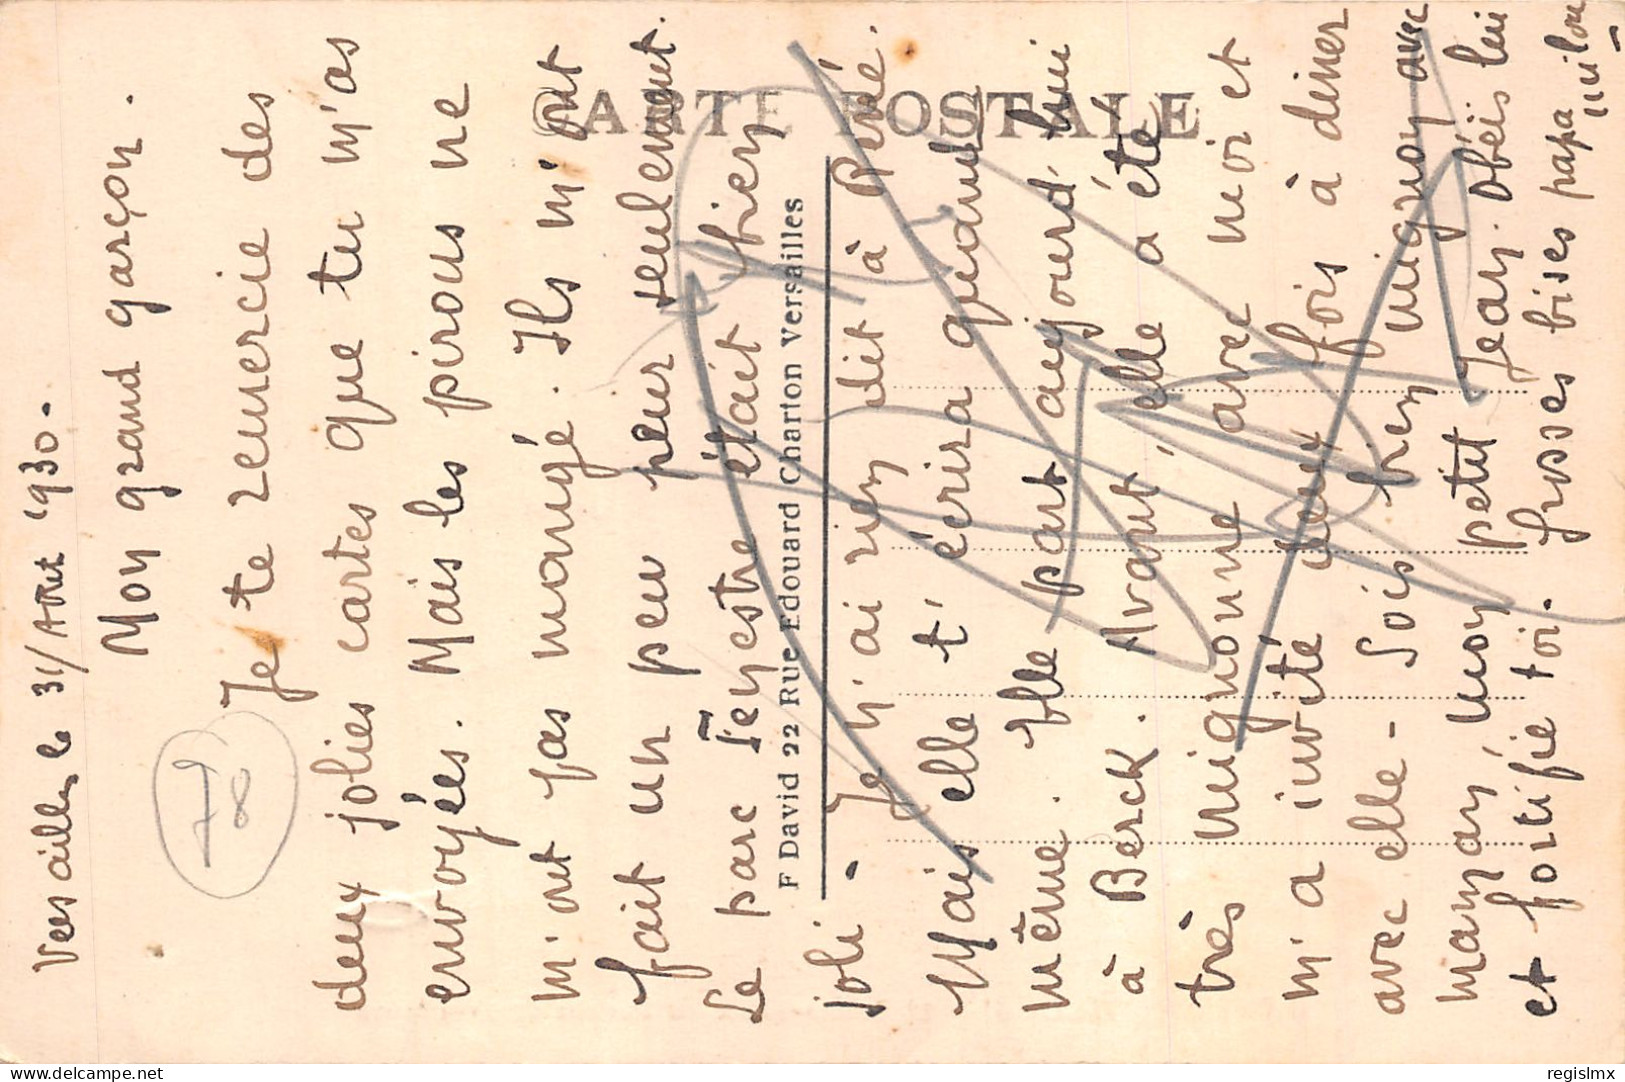 Versailles le 31/Aout 1930.
Mon grand garçon.
Je te remercie des
deux jolies cartes que tu m'as
envoyées. Mais les pirous ne
m'ont pas mangé. Ils m'ont
fait un peu peur seulement.
Le parc Terrestre était bien
joli - Je n'ai rien dit à
Mais elle t'écrira quand
même. Elle part aujourd'hui
à Berck. Avant, elle a été
très mignonne avec moi et
m'a invité deux fois à diner
avec elle - Sois bien mignon avec
maman, mon petit Jean. Obéis lui
et fortifie toi. Grosses bises papa
CARTE POSTALE
F David 22 Rue Edouard Charton Versailles
78
delcampe.net
regislmx